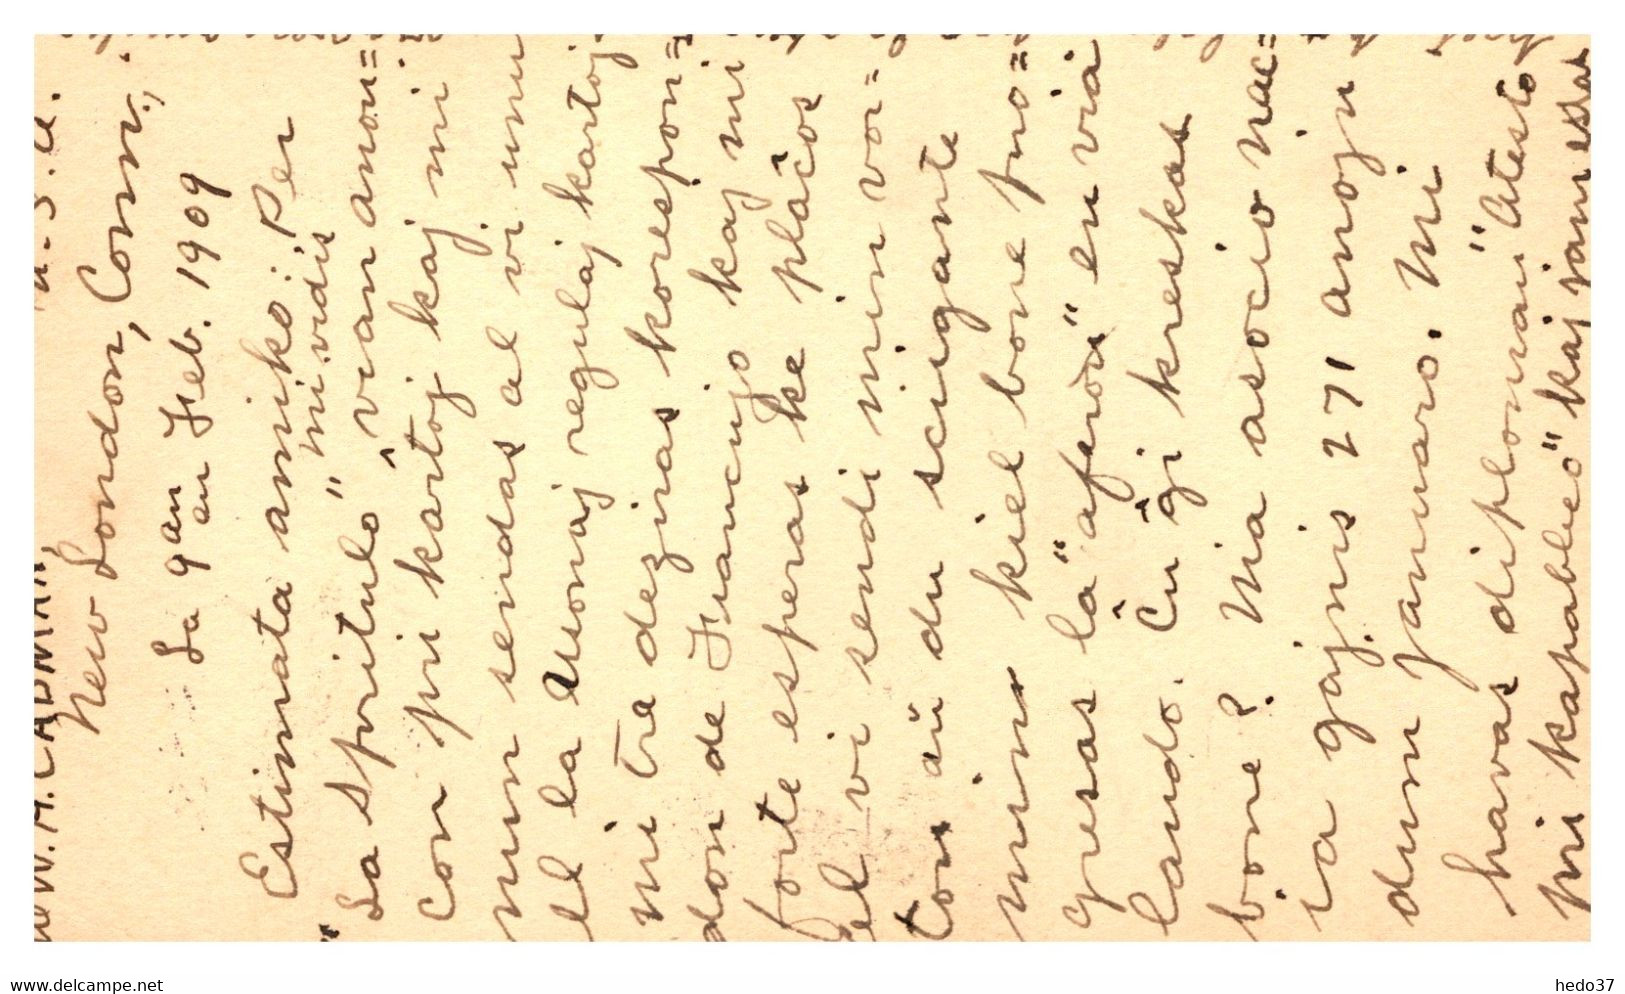 W. H. LADMAN,
U.S.A.
New London, Conn.,
La 9an en Feb. 1909
Estimata amiko: Per
"La Spritulo" mi vidis vian anon=
con pri kartoj kaj mi
nun sendas al vi unu
el la Monaj regulaj kartoj
mi tre deziras korespon=
don de Francujo kaj mi
forte esperas ke plaĉos
el vi sendi min vor=
ton aŭ du sciigante
min kiel bone pro=
gresas la "aferon" en via
lando. Ĉu ĝi kreskas
bone? Nia asocio nac=
ia gajnis 271 anojn
dum januaro. Mi
havas diploman "Atesto
pri kapableco" kaj jam estas